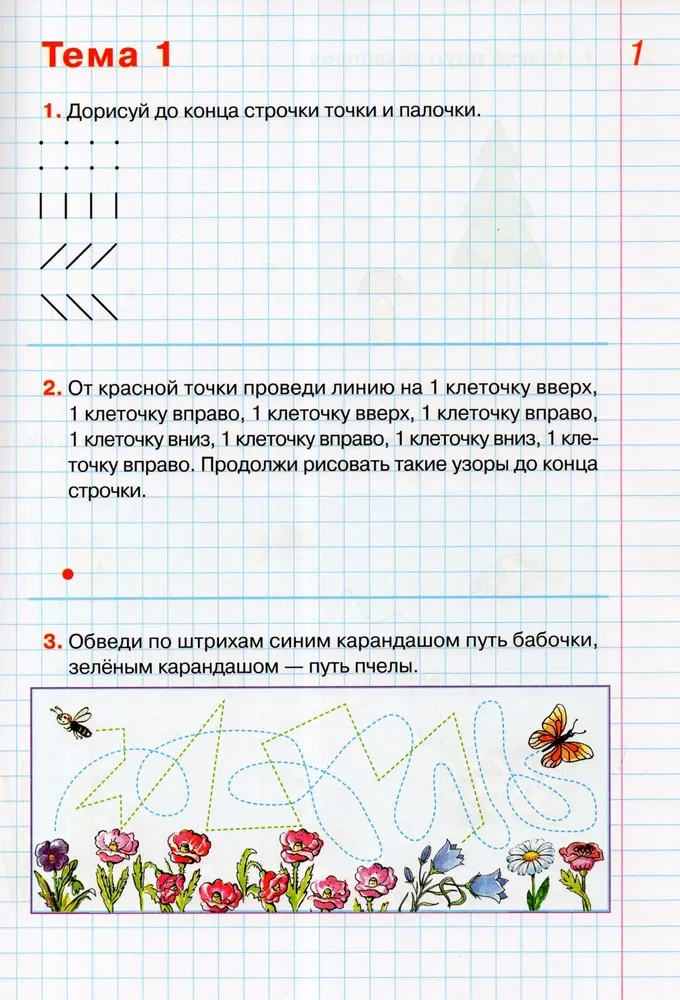 Тема 1
1
1. Дорисуй до конца строчки точки и палочки.
2. От красной точки проведи линию на 1 клеточку вверх,
1 клеточку вправо, 1 клеточку вверх, 1 клеточку вправо,
1 клеточку вниз, 1 клеточку вправо, 1 клеточку вниз, 1 кле-
точку вправо. Продолжи рисовать такие узоры до конца
строчки.
3. Обведи по штрихам синим карандашом путь бабочки,
зелёным карандашом — путь пчелы.